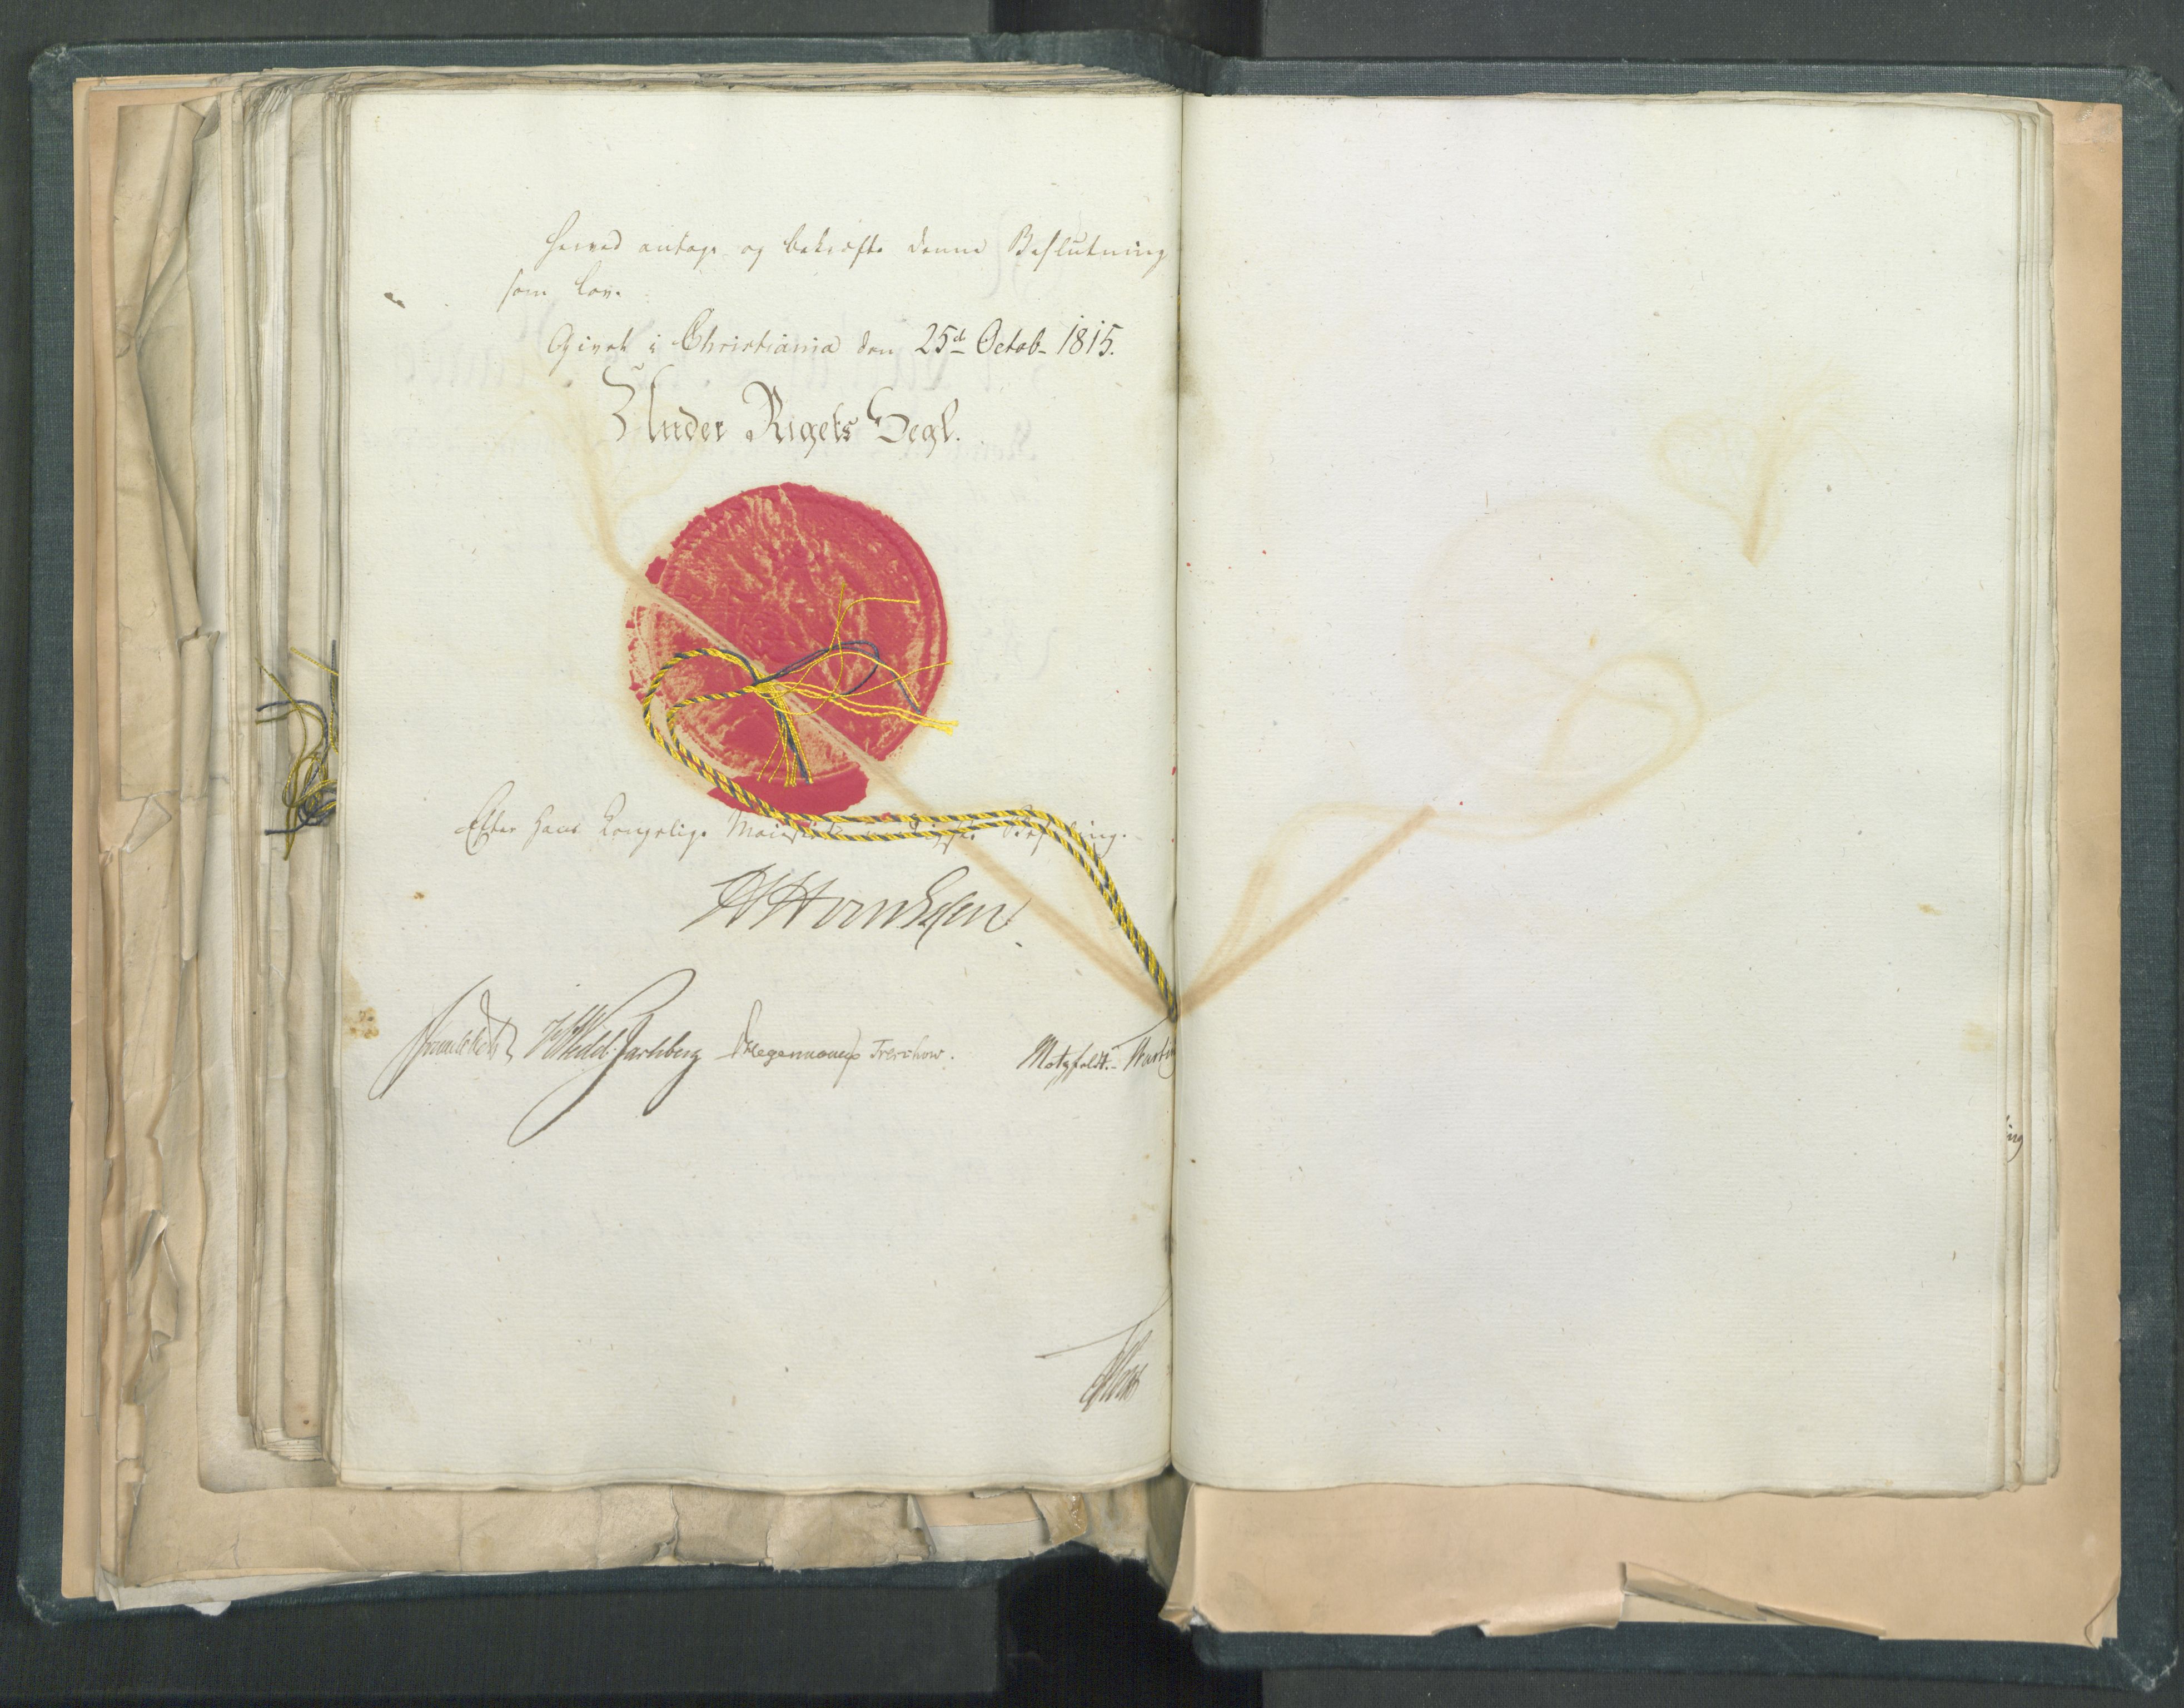 herved antage og bekræfte denne Beslutning
som Lov.
Givet i Christiania den 25d Octob. 1815.
Under Rigets Segl.
Efter Hans Kongelige Maiestæts Befaling.
Sommerhielm Wedel Jarlsberg Hegermann Treschow. Motzfeldt.